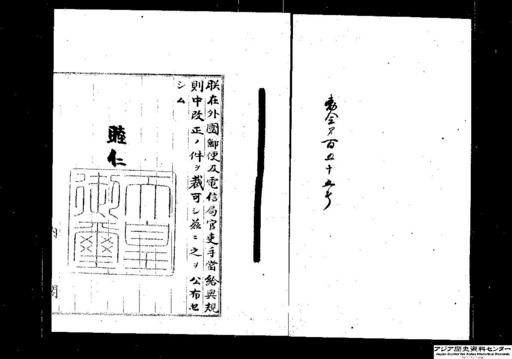 勅令第百五十五号
朕在外國郵便及電信局官吏手當給與規
則中改正ノ件ヲ裁可シ茲ニ之ヲ公布セ
シム
睦仁
天皇
御璽
内閣
アジア歴史資料センター
Japan Center for Asian Historical Records